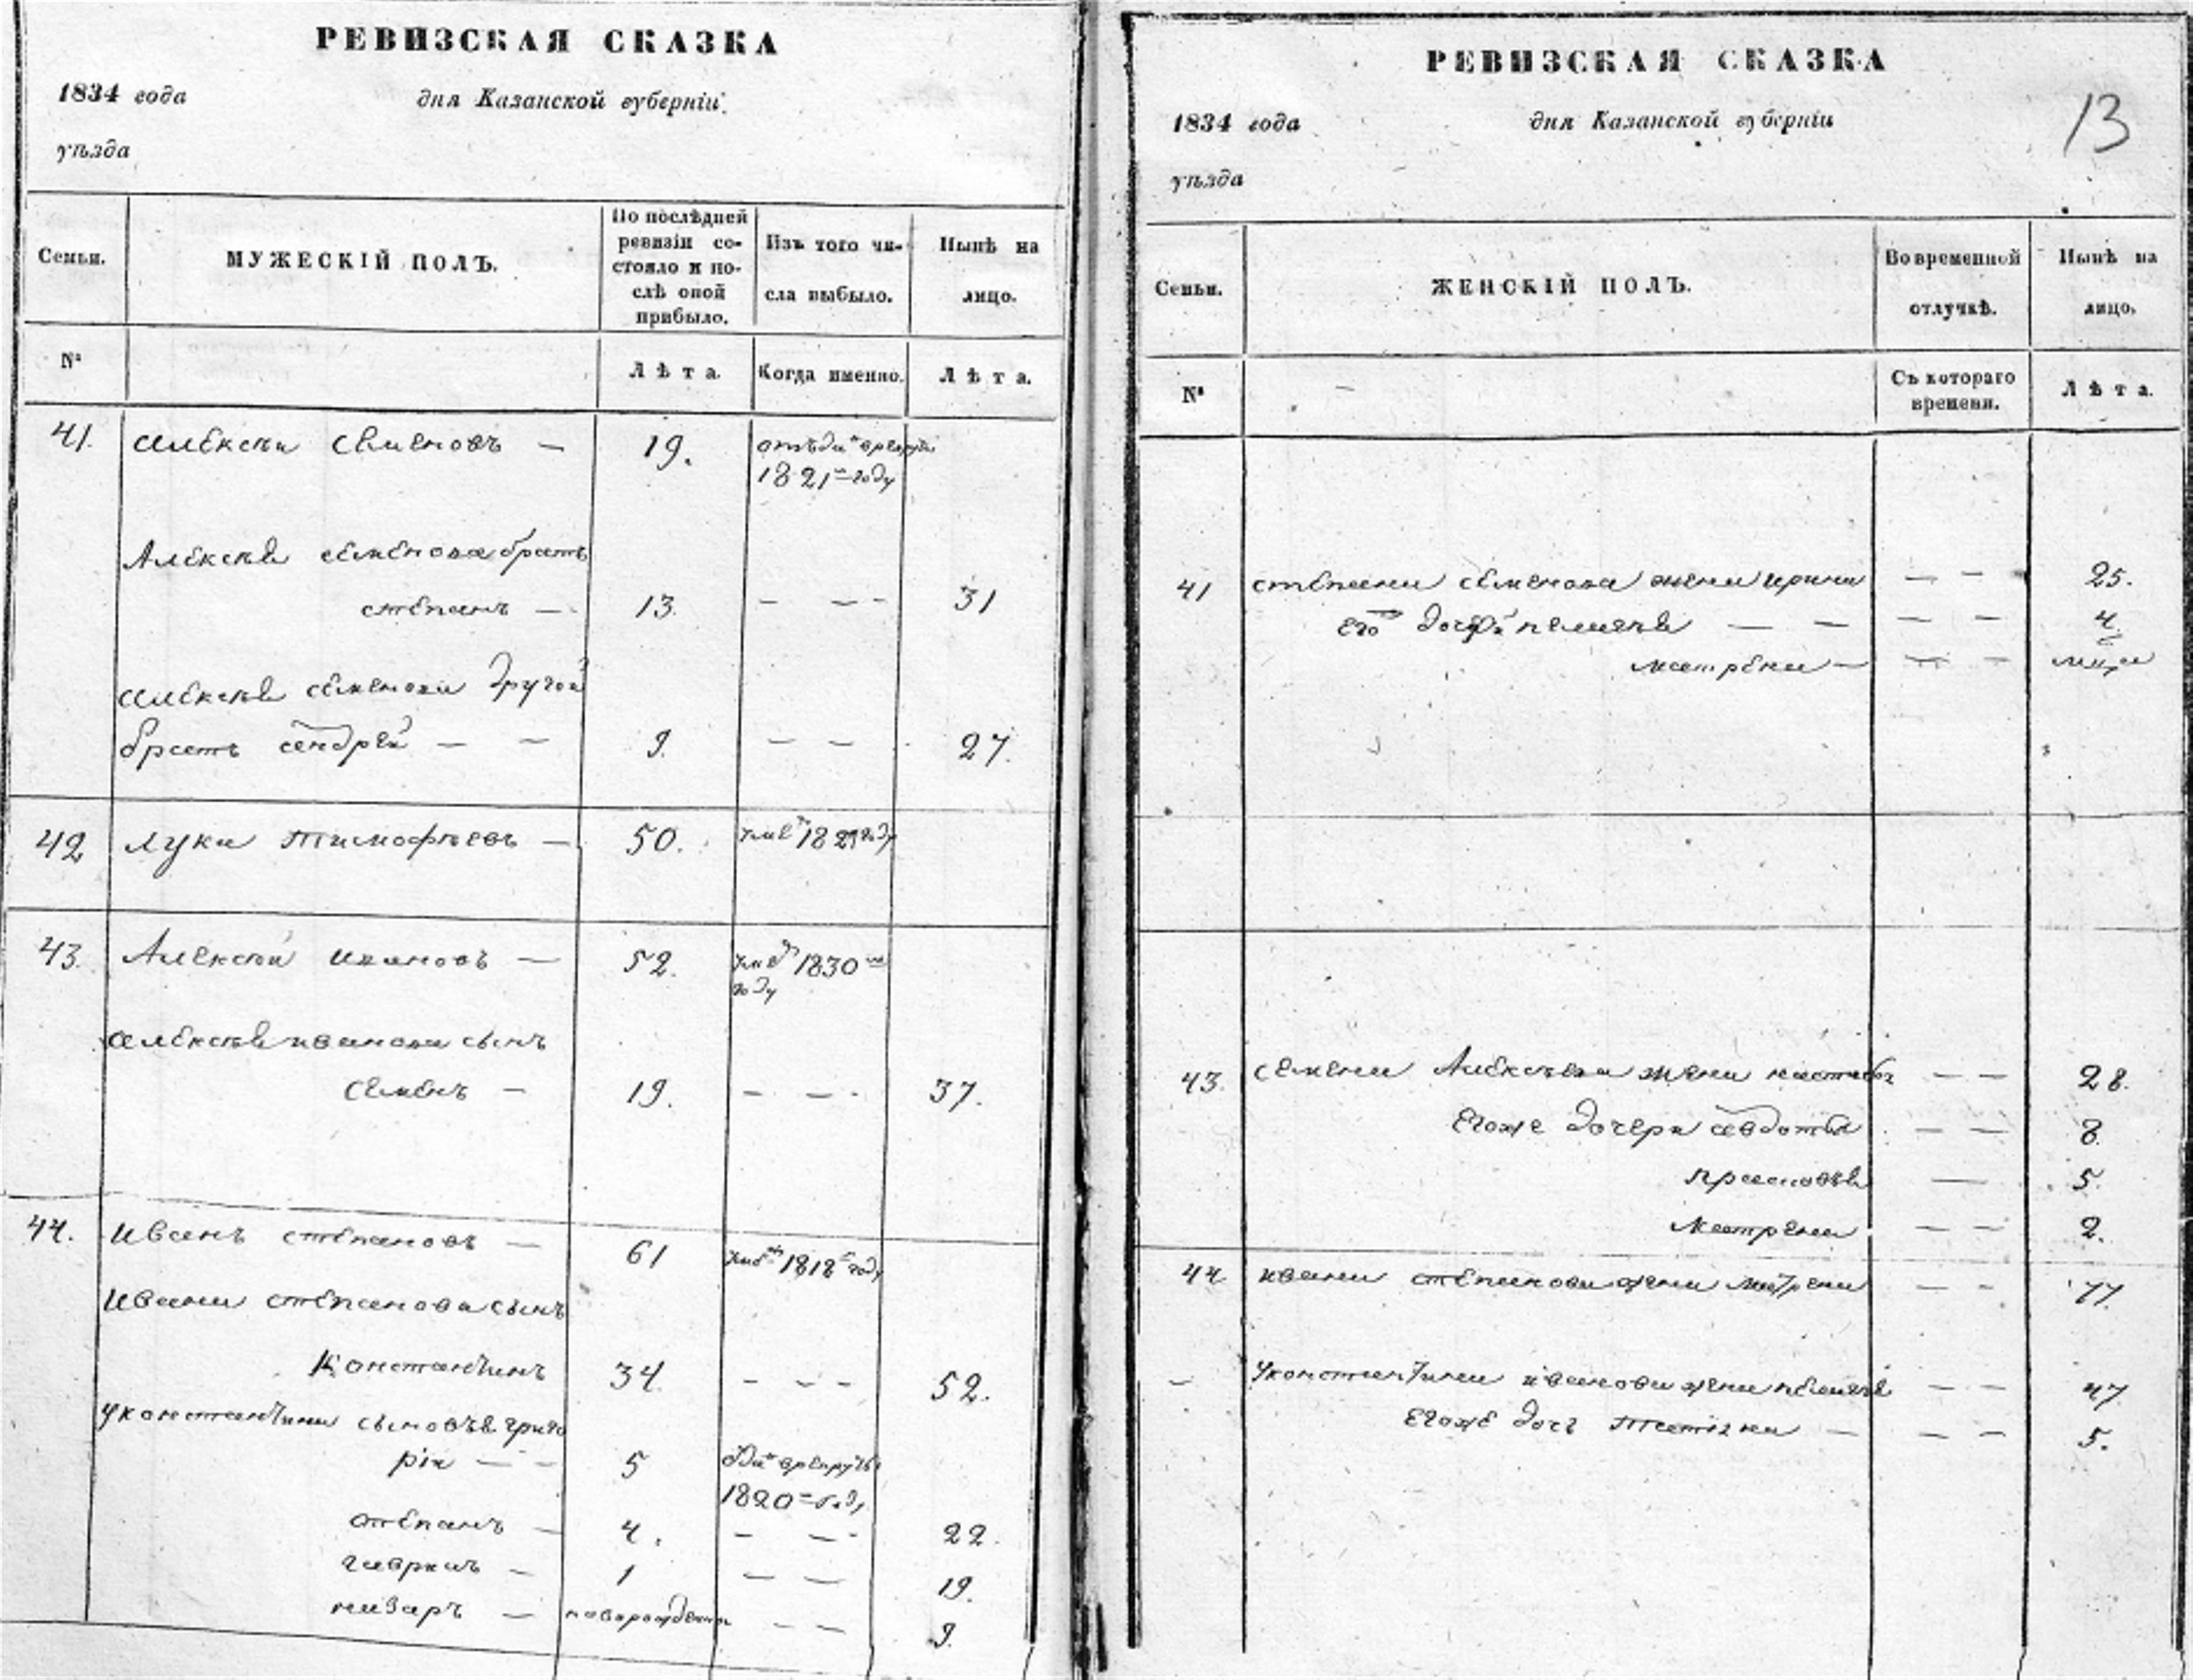 РЕВИЗСКАЯ СКАЗКА
1834 года дня Казанской губерніи.
уѣзда
Семьи. МУЖЕСКІЙ ПОЛЪ. По послѣдней ревизіи состояло и послѣ оной прибыло. Изъ того числа выбыло. Нынѣ на лицо.
№ Лѣта. Когда именно. Лѣта.
41. Алексѣи Семеновъ — 19. отъдан врекруты
1821 году
Алексѣя семенова братъ
степанъ — 13. — — - 31
алексѣя семенова другой
братъ андрей — — 9. — — 27.
42 лука Тимофѣевъ — 50. году
43. Алексѣй ивановъ — 52. 1830
году
алексѣя иванова сынъ
семенъ — 19. - — . 37.
44. Иванъ степановъ — 61 1818 году
Ивана степанова сынъ
Константинъ 34 - - - 52.
Уконстантина сыновья григо
рій — - 5 одан врекруты
1820 году
степанъ — 4. — — 22.
гаврилъ — 1 — — 19.
назаръ — новорожденны — — 9.
РЕВИЗСКАЯ СКАЗКА
1834 года дня Казанской губерніи 13
уѣзда
Семьи. ЖЕНСКІЙ ПОЛЪ. Во временной отлучкѣ. Нынѣ на лицо.
№ Съ котораго времени. Лѣта.
41 степана семенова жена ирина — - 25.
его дочери пелагея — — — — 4
матрена — — —
43. семена Алексѣева жена — — 28.
Егоже дочери авдотья — — 8.
прасковья — 5
Матрена — — 2.
44 ивана степанова жена матрена — — 77.
- Уконстантина иванова жена пелагея — — 47
Егоже дочь — — — 5.